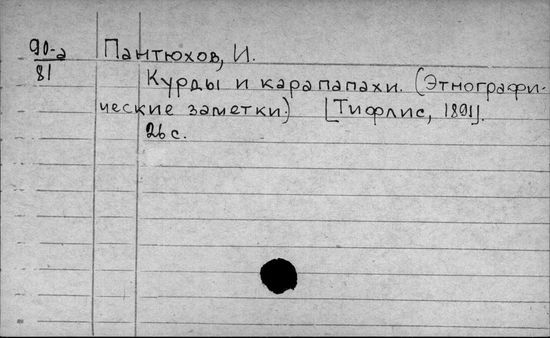 90-а
81
Пантюхов, И.
Курды и карапапахи. (Этнографи-
ческие заметки) [Тифлис, 1891].
26 с.